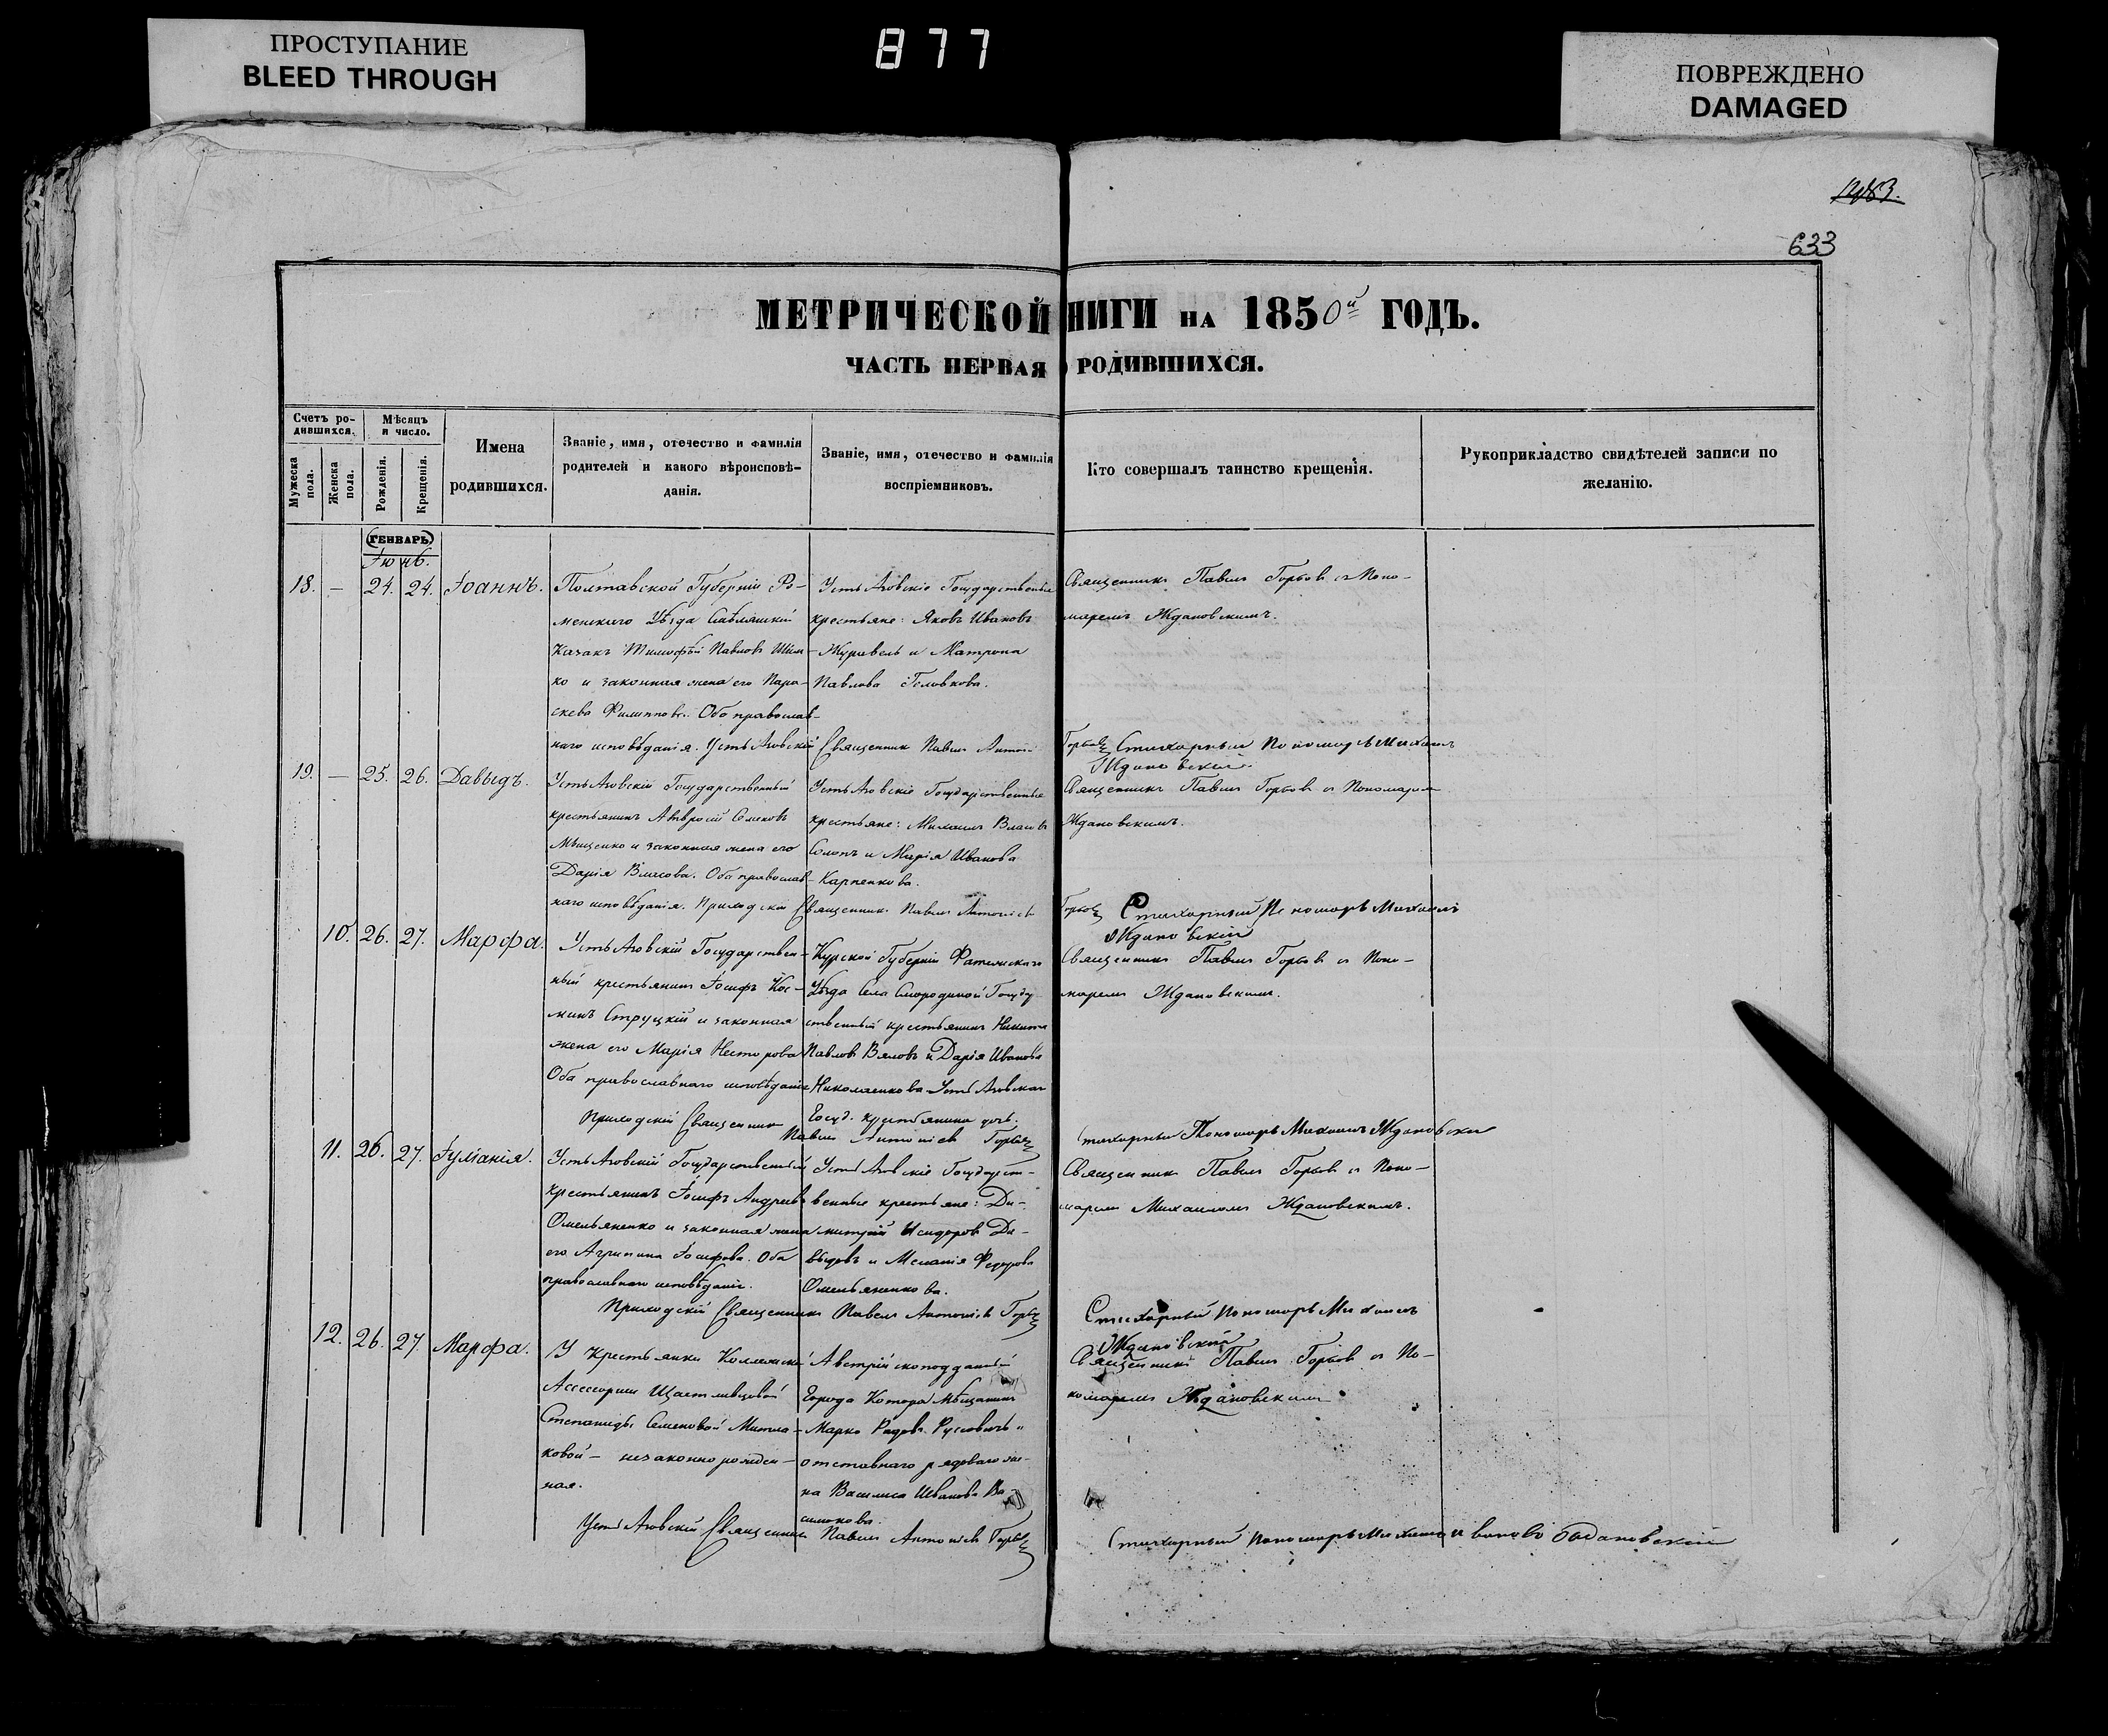 ПРОСТУПАНИЕ
BLEED THROUGH
877
ПОВРЕЖДЕНО
DAMAGED
1283.
633
МЕТРИЧЕСКОЙ НИГИ НА 1850й ГОДЪ.
ЧАСТЬ ПЕРВАЯ О РОДИВШИХСЯ.
Счетъ ро-
дившихся.
Мѣсяцъ
и число.
Мужеска
пола.
Женска
пола.
Рожденія.
Крещенія.
Имена
родившихся.
Званіе, имя, отечество и фамилія
родителей и какого вѣроисповѣ-
данія.
Званіе, имя, отечество и фамилія
воспріемниковъ.
Кто совершалъ таинство крещенія.
Рукоприкладство свидѣтелей записи по
желанію.
ГЕНВАРЬ
Іюнь.
18. — 24. 24. Іоаннъ.
Полтавской Губерніи Ро-
менскаго Уѣзда
Казакъ Тимофѣй Павловъ
ко и законная жена его Пара-
скева Филиппова. Оба православ-
наго исповѣданія. Усть Азовскій Священникъ Павелъ
Усть Азовскіе Государственные
крестьяне: Яковъ Ивановъ
Журавель и Матрона
Павлова Головкова.
Священникъ Павелъ Горбов съ Поно-
маремъ Ждановскимъ.
Стихарный Пономарь Михаил
Ждановскій
19. — 25. 26. Давыдъ.
Усть Азовскій Государственный
крестьянинъ Амвросій Семеновъ
Мищенко и законная жена его
Дарія Власова. Оба православ-
наго исповѣданія. Приходскій Священникъ Павелъ Антоніев
Усть Азовскіе Государственные
крестьяне: Михаилъ Власовъ
Солопъ и Марія Иванова
Карпенкова.
Священникъ Павелъ Горбов съ Пономарем
Ждановскимъ.
Стихарный Пономарь Михаилъ
Ждановскій
10. 26. 27. Марфа.
Усть Азовскій Государствен-
ный крестьянинъ Іосифъ Кос-
минъ Струцкій и законная
жена его Марія Несторова
Оба православнаго исповѣданія
Приходскій Священник
Павелъ Антоніев Горбов
Курской Губерніи Фатежскаго
Уѣзда Села Смородиной Государ
ственный крестьянинъ Никита
Павлов Вялов и Дарія Иванова
Николаенкова Усть Азовскаго
Госуд. крестьянина дочь.
Священникъ Павелъ Горбов съ Поно-
маремъ Ждановскимъ.
Стихарный Пономарь Михаилъ Ждановскій
11. 26. 27. Іуліанія.
Усть Азовскій Государственный
крестьянинъ Іосифъ Андреевъ
Омельяненко и законная жена
его Агрипина Іосифова. Оба
православнаго исповѣданія.
Приходскій Священникъ Павелъ Антоніев Горбов
Усть Азовскіе Государст-
венные крестьяне: Ди-
митрій Исидоров Да-
выдовъ и Меланія Федорова
Омельяненкова.
Священникъ Павелъ Горбов съ Поно-
марем Михаиломъ Ждановскимъ.
Стихарный Пономарь Михаилъ
Ждановскій
12. 26. 27. Марфа.
У Крестьянки Коллежской
Ассесорши Щастливцовой
Степаниды Семеновой
ковой — незаконнорожден-
ная.
Усть Азовскій Священникъ Павелъ Антоніев Горбов
Австрійскоподданный
Города Котора Мѣщанинъ
Марко Радов. Русовичъ и
отставнаго рядоваго же-
на Василиса Иванова Ва-
силькова.
Священникъ Павелъ Горбов съ По-
номаремъ Ждановскимъ
Стихарный Пономарь